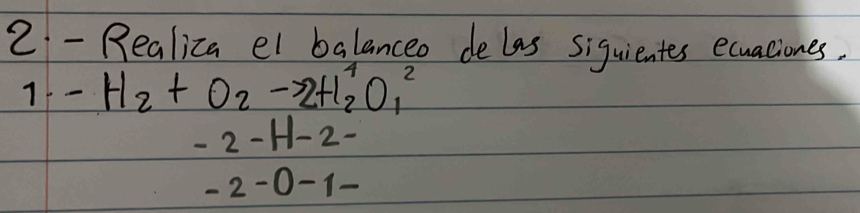 2.- Realiza el balanceo de las siguientes ecuaciones.
1.- H₂ + O₂ → 2H₂⁴O₁²
- 2 - H - 2 -
- 2 - O - 1 -